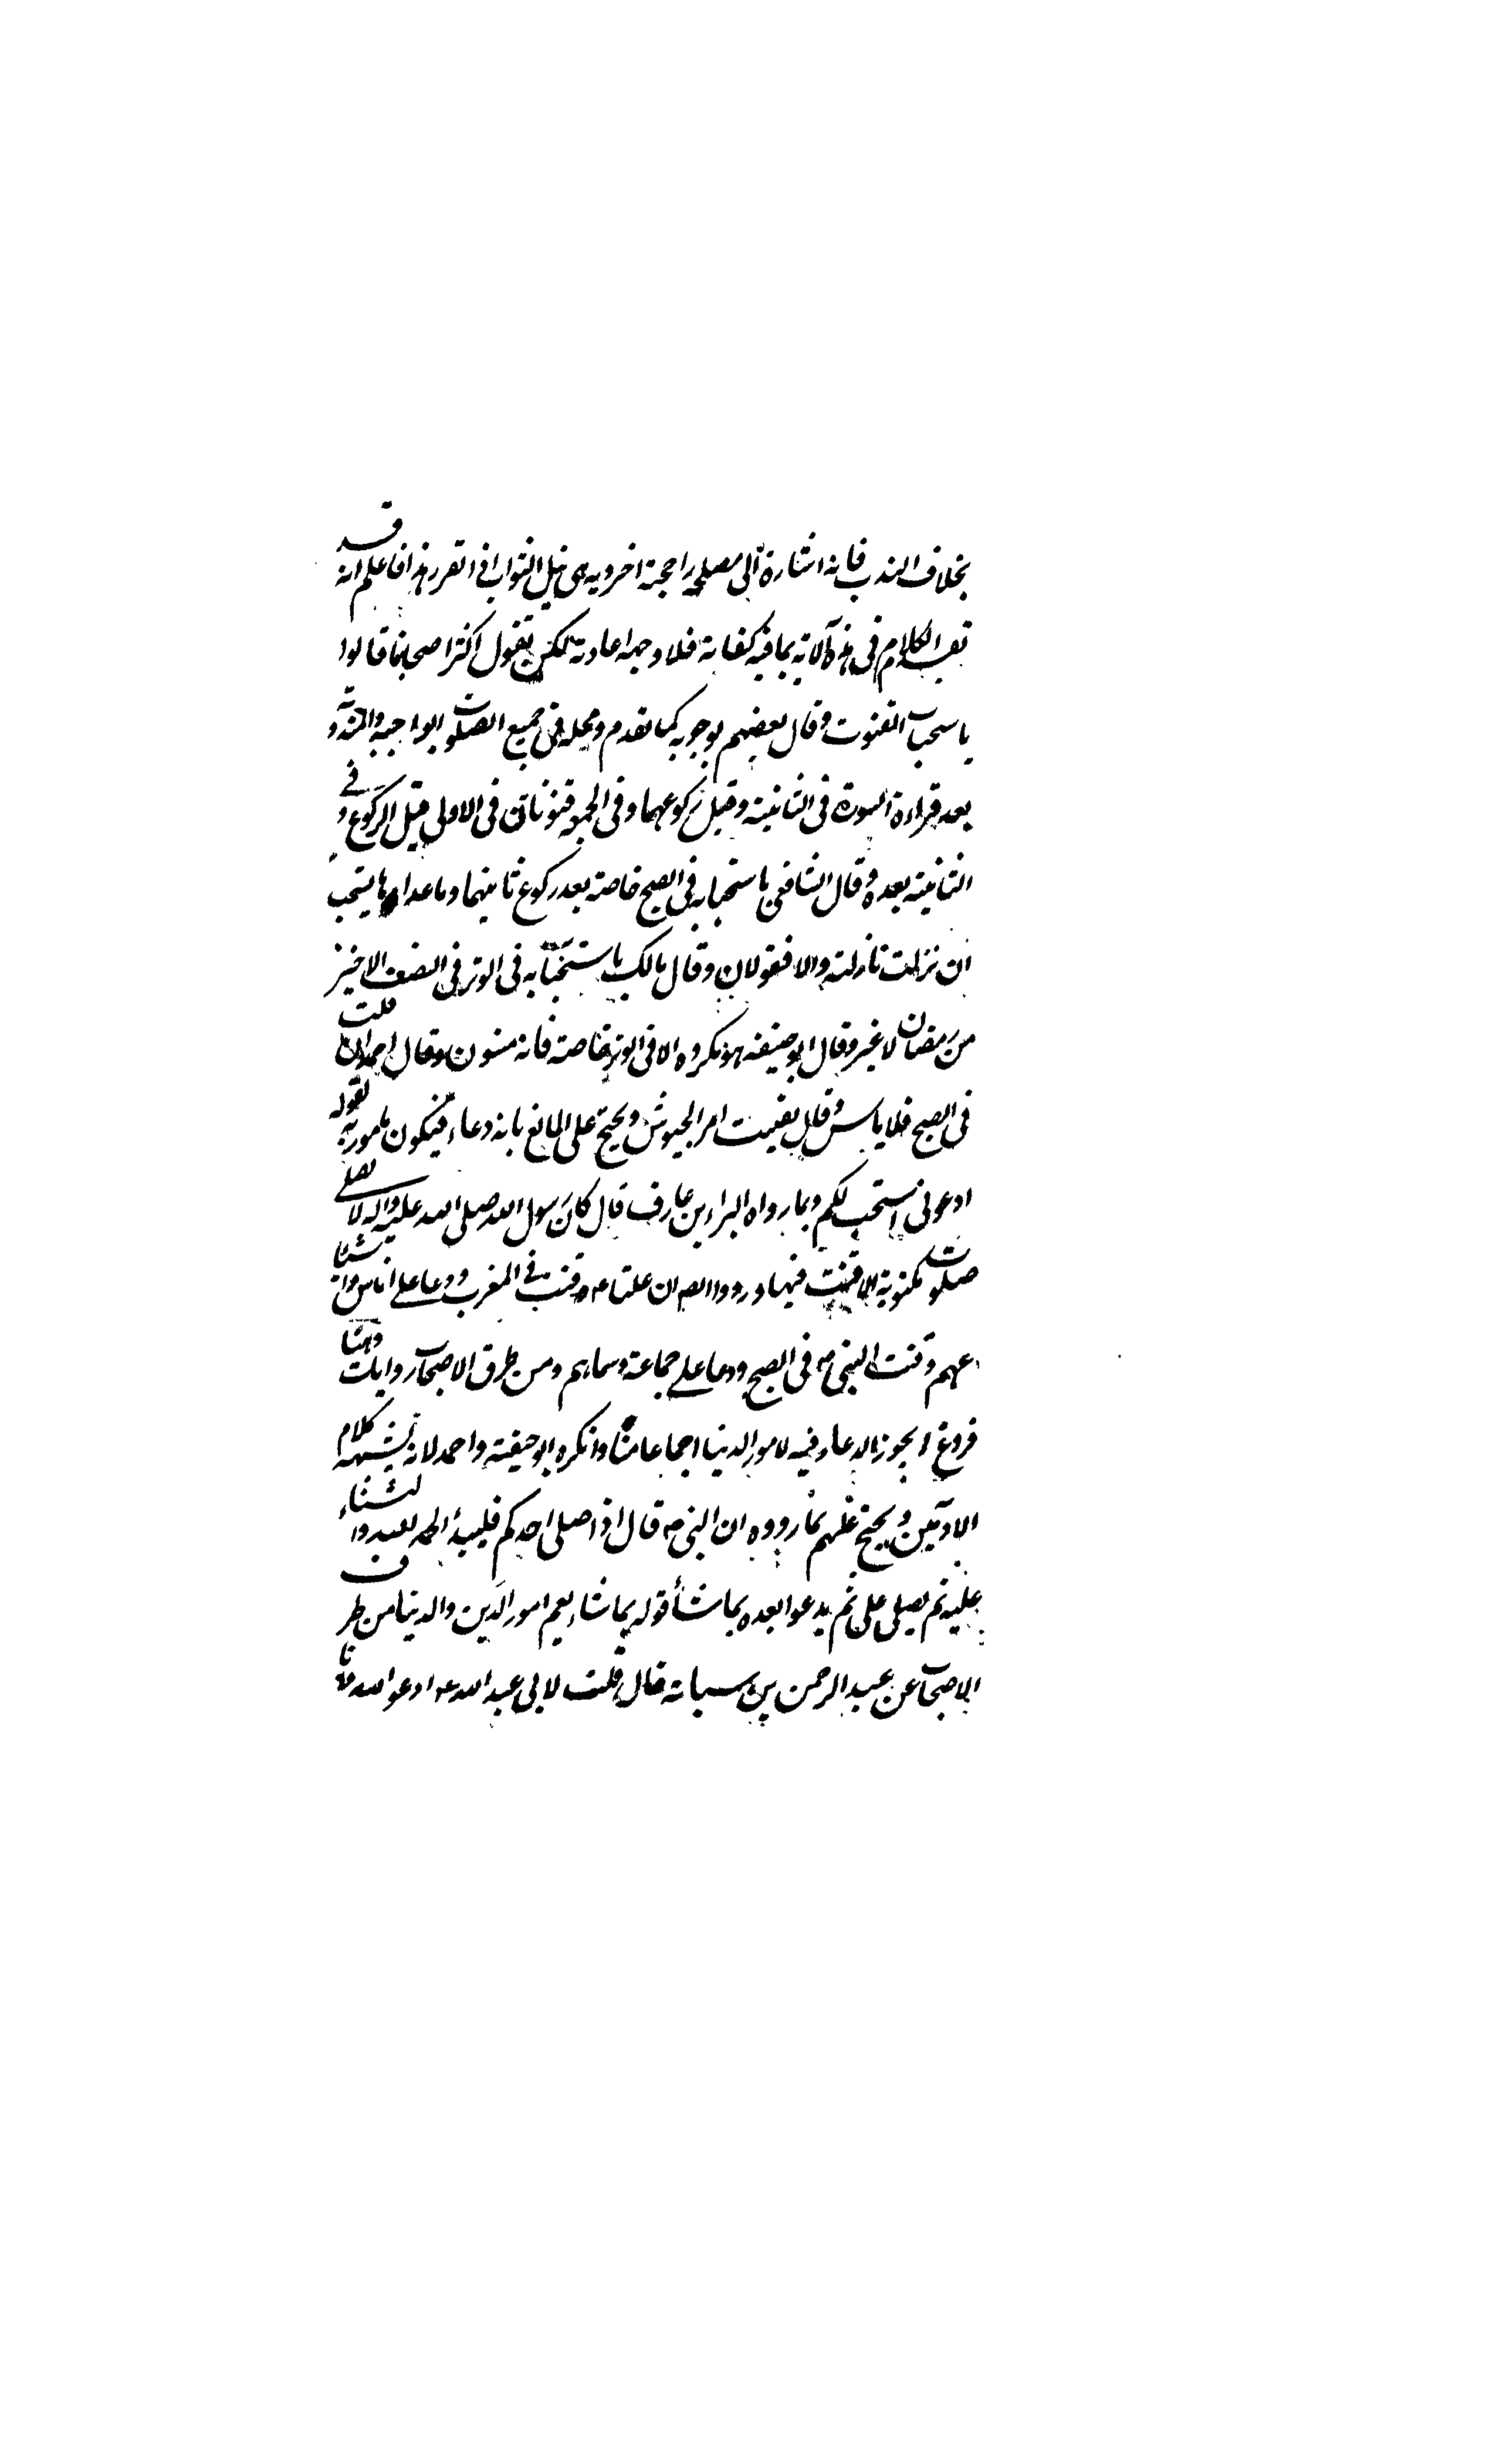 بخلاف الندب فانه اشارة الى مصلحة راجحة اخروية هى نيل الثواب اذا تقرر هذا فاعلم انه قد
تقدم الكلام فى هذه الاية بما فيه كفاية فلا وجه لاعادته لكن نقول اكثر اصحابنا قالوا
باستحباب القنوت وقال بعضهم بوجوبه كما تقدم ومحله فى جميع الصلوات الواجبة والمندوبة
بعد قراءة السورة فى الثانية وقبل ركوعها وفى الجمعة قنوتان فى الاولى قبل الركوع و فى
الثانية بعده وقال الشافعى باستحبابه فى الصبح خاصة بعد ركوع ثانيتها وما عداها يستحب
ان نزلت نازلة والا فقولان وقال مالك باستحبابه فى الوتر فى النصف الاخير
من رمضان لا غير وقال ابو حنيفة هو مكروه الا فى الوتر خاصة فانه مسنون وقال احمد ان قلت
فى الصبح فلا باس وقال يقنت امر الجيوش ويحتج على المانع بانه دعاء فيكون مامورا به لقوله
ادعونى استجب لكم وبما رواه البراء بن عازف قال كان رسول الله صلى الله عليه واله لا يصلى
صلوت مكتوبة الا قنت فيها ورووا ايض ان عليا ع قنت فى المغرب ودعا على اناس واشياعهم
وقنت النبى ص فى الصبح ودعا على جماعة وسماهم ومن طرق الاصحاب روايات وهنا
فروع ا يجوز الدعاء فيه لامور الدنيا اجماعا منا وانكره ابو حنيفة واحمد لانه يشبه كلام
الادميين ويحتج عليهم بما رووه ان النبى ص قال اذا صلى احدكم فليبدأ الحمد لله والثناء
عليه ثم يصلى على ثم يدعوا بعده بما شاء قوله بما شاء يعم امور الدين والدنيا من طرف
الاصحاب عن عبد الرحمن بن سيابة قال قلت لابى عبد الله ع ادعو الله وانا